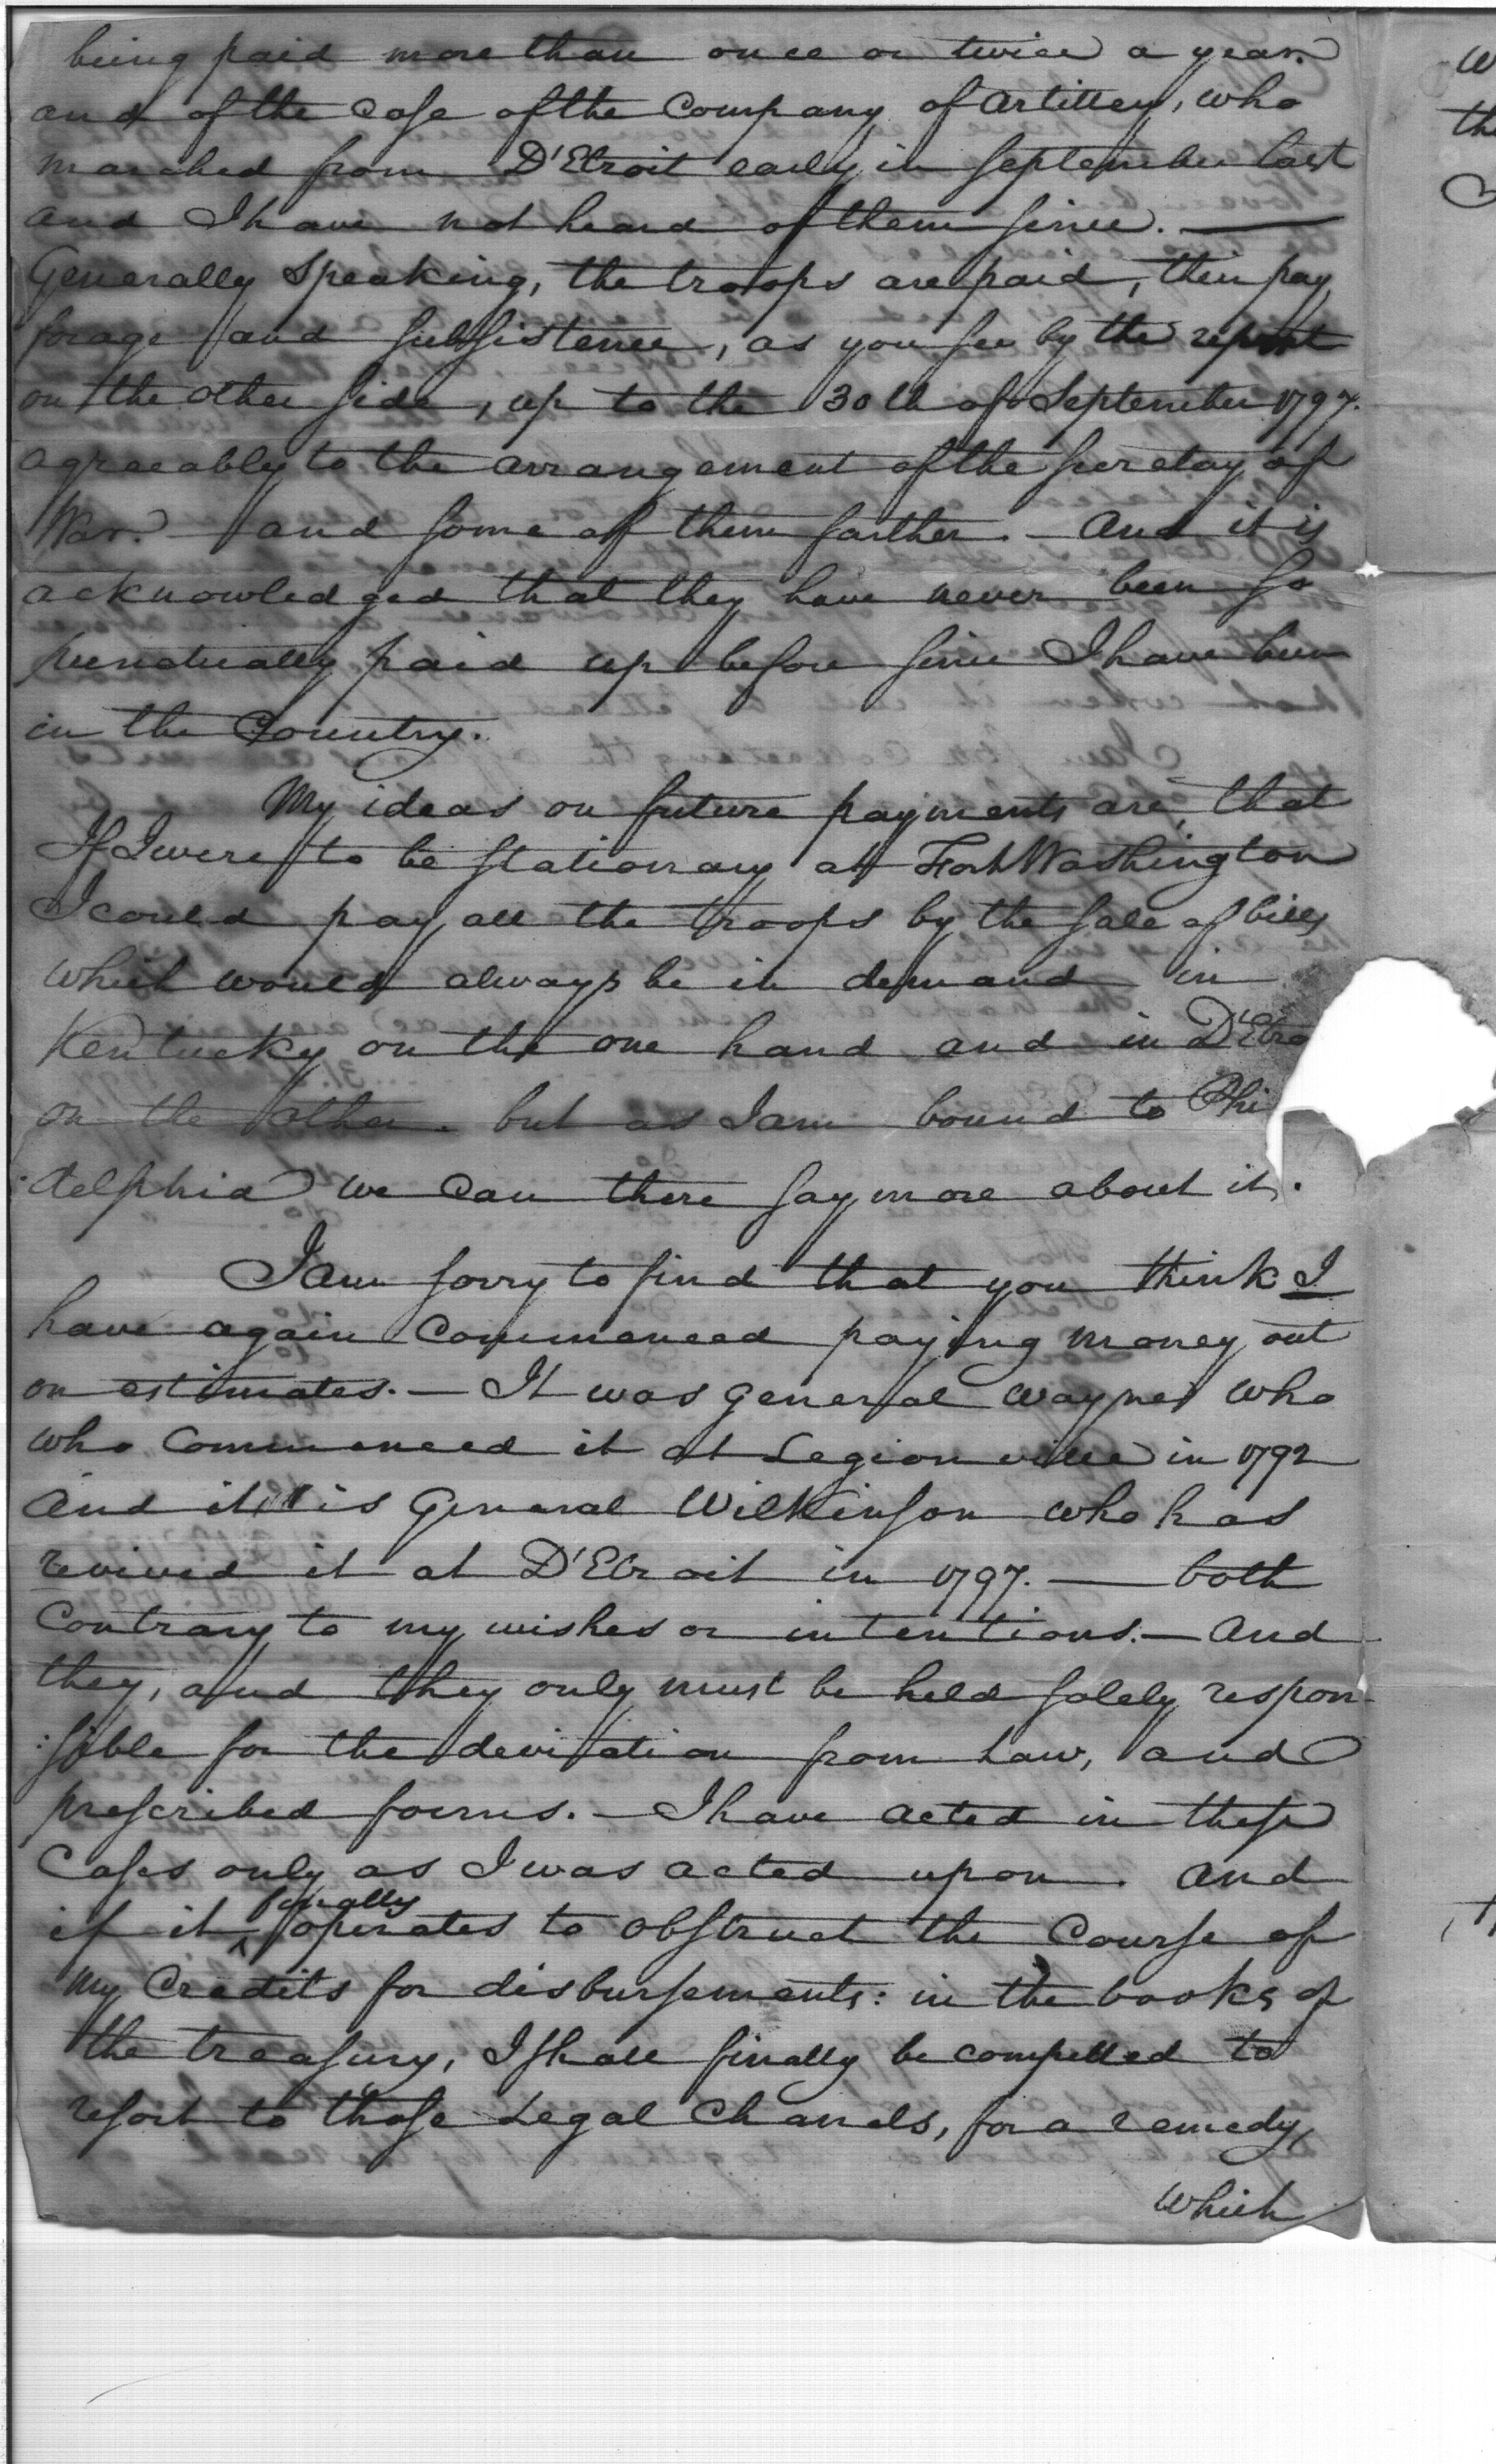 being paid more than once or twice a year.
and of the case of the Company of Artillery, who
marched from D'Etroit early in September last
and I have not heard of them since. —
Generally speaking, the troops are paid, their pay
forage and subsistence, as you see by the report
on the other side, up to the 30th of September 1797.
agreeably to the arrangement of the Secretay of
War. — and some of them farther. — And it is
acknowledged that they have never been so
punctually paid up before since I have been
in the Country.
My ideas on future payments are, that
If I were to be stationary at Fort Washington
I could pay all the troops by the sale of bills
which would always be in demand in
Kentucky on the one hand and in D'Etro
on the other. but as I am bound to Phi
:delphia we can there say more about it.
I am sorry to find that you think I
have again Commenced paying money out
on estimates. — It was General Wayne who
who Commenced it at Legionville in 1792
And it is General Wilkinson who has
revived it at D'Etroit in 1797. — both
Contrary to my wishes or intentions. — And
they, and they only must be held solely respon-
:sible for the deviation from Law, and
prescribed forms. — I have acted in these
Cases only as I was acted upon. And
if it finally operates to obstruct the Course of
my Credits for disbursements: in the books of
the treasury, I shall finally be compelled to
resort to those Legal Chanels, for a remedy,
which
W
the